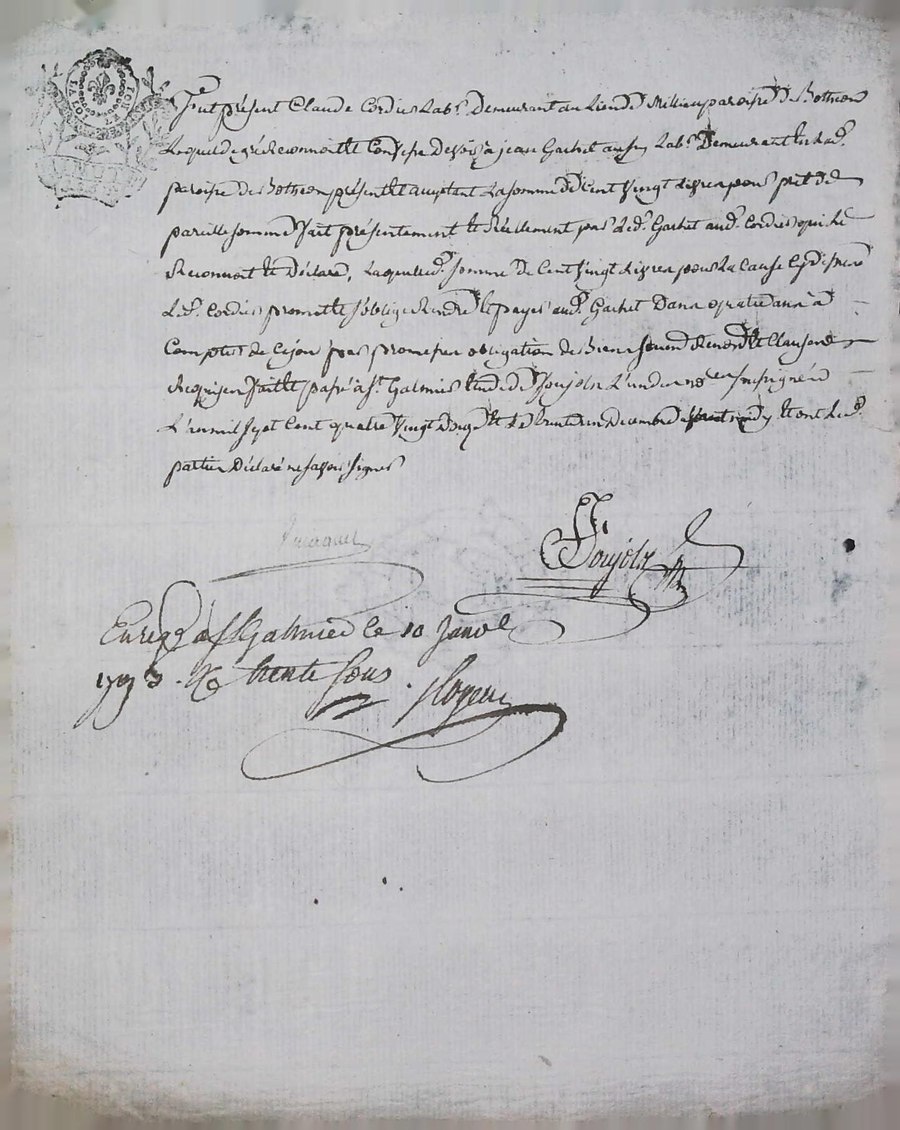 LA LOI ET LE ROI
Fut présent Claude Cordier Lab.r Demeurant au Lieu de Milieu paroisse de Bothéon
Lequel de gré Reconnoit et Confesse Devoir à jean Gachet aussy Lab.r Demeurant en lad.e
paroisse de Botheon présent et acceptant La somme de Cent vingt Livres pour prêt de
pareille somme fait présentement et Réellement par Led. Gachet aud. Cordier qui Le
Reconnoit et Déclare, Laquelle d.e somme de Cent vingt Livres pour La Cause Cydessus
Led. Cordier promet et s'oblige Rendre et payer aud. Gachet Dans quatre ans à
Compter de Ce jour par promesse obligation de Biens soumns Renonns et Clauses
Requises fait et passé à St. Galmier Etude de Soujoln L'un des nores soussigné
L'an mil sept Cent quatre vingt douze et Le trente un decembre et ont Les d.
parties Déclaré ne savoir signer
Soujoln
Enregé a St Galmier le 10 Janv
1793. Rç trente sous.